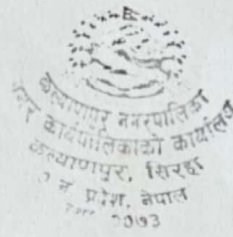 कल्याणपुर नगरपालिका
नगर कार्यपालिकाको कार्यालय
कल्याणपुर, सिरहा
प्रदेश, नेपाल
२०७३